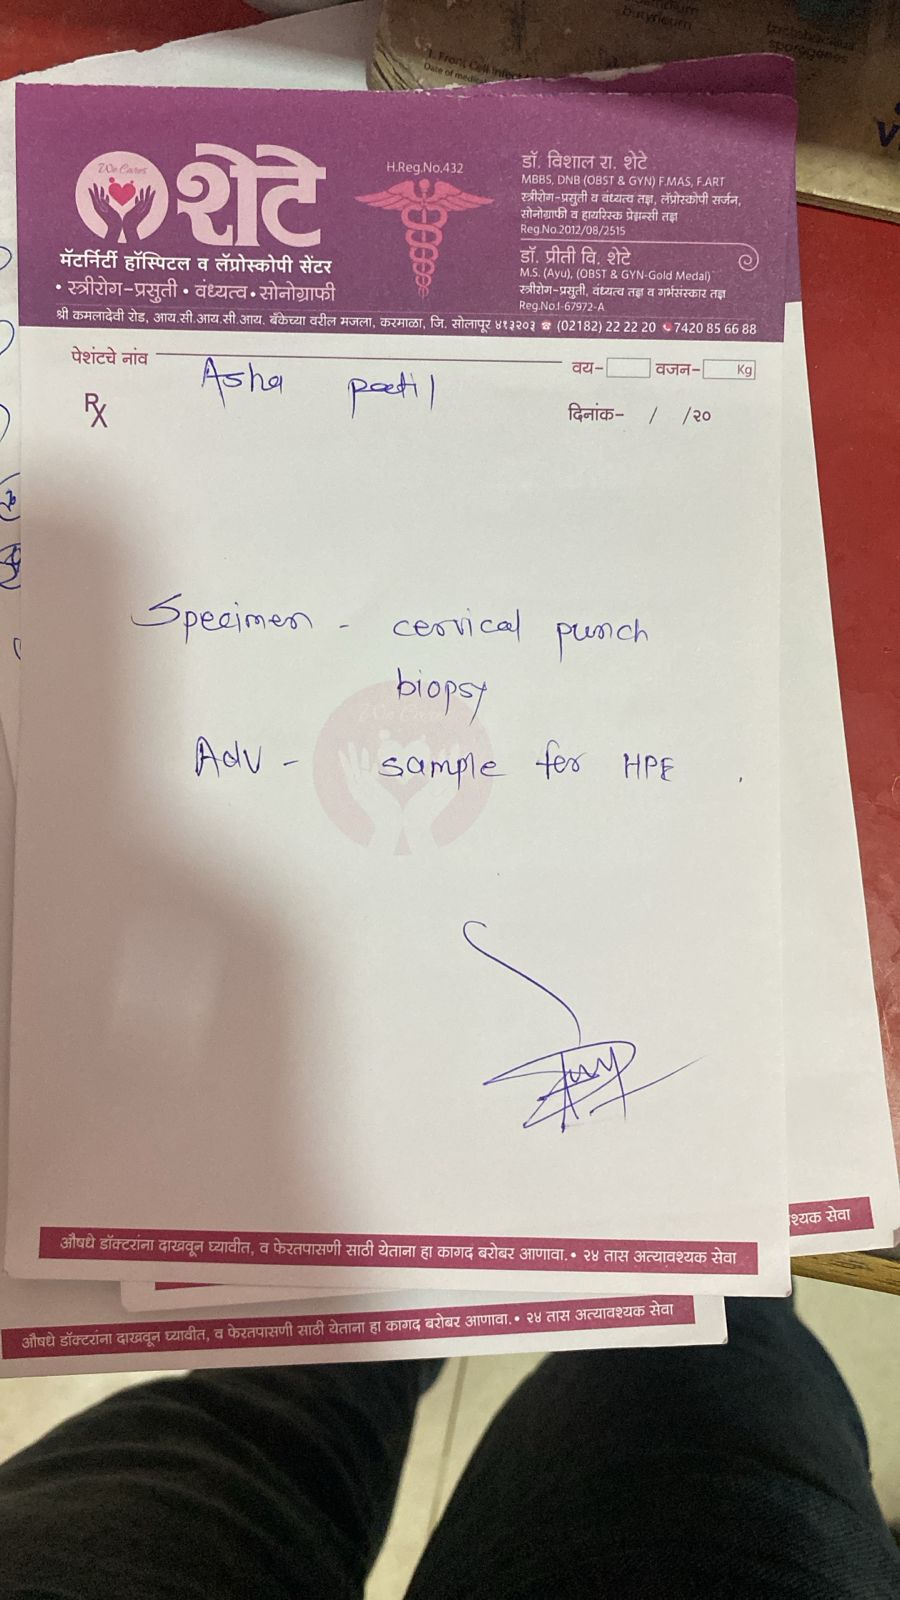 1. Front Cell Infect
Date of medic
butyricum
sporogenes
We Cares
शेटे
मॅटर्निटी हॉस्पिटल व लॅप्रोस्कोपी सेंटर
• स्त्रीरोग-प्रसुती • वंध्यत्व • सोनोग्राफी
H.Reg.No.432
डॉ. विशाल रा. शेटे
MBBS, DNB (OBST & GYN) F.MAS, F.ART
स्त्रीरोग-प्रसुती व वंध्यत्व तज्ञ, लॅप्रोस्कोपी सर्जन,
सोनोग्राफी व हायरिस्क प्रेग्नन्सी तज्ञ
Reg.No.2012/08/2515
डॉ. प्रीती वि. शेटे
M.S. (Ayu), (OBST & GYN-Gold Medal)
स्त्रीरोग-प्रसुती, वंध्यत्व तज्ञ व गर्भसंस्कार तज्ञ
Reg.No.I-67972-A
श्री कमलादेवी रोड, आय.सी.आय.सी.आय. बँकेच्या वरील मजला, करमाळा, जि. सोलापूर ४१३२०३ ☎ (02182) 22 22 20 7420 85 66 88
पेशंटचे नांव Asha patil वय- वजन- Kg
Rx दिनांक- / /२०
Specimen - cervical punch
biopsy
Adv - sample for HPE .
औषधे डॉक्टरांना दाखवून घ्यावीत, व फेरतपासणी साठी येताना हा कागद बरोबर आणावा. • २४ तास अत्यावश्यक सेवा
श्यक सेवा
औषधे डॉक्टरांना दाखवून घ्यावीत, व फेरतपासणी साठी येताना हा कागद बरोबर आणावा. • २४ तास अत्यावश्यक सेवा